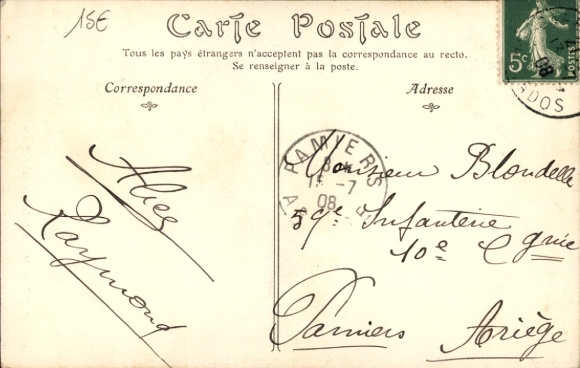 15€
Carte Postale
Tous les pays étrangers n'acceptent pas la correspondance au recto.
Se renseigner à la poste.
Correspondance
Adresse
5c
POSTES
08
ADOS
PAMIERS
8
-7
08
Raymond
Monsieur Blondelle
59e Infanterie
10e Cgnie
Pamiers Ariège